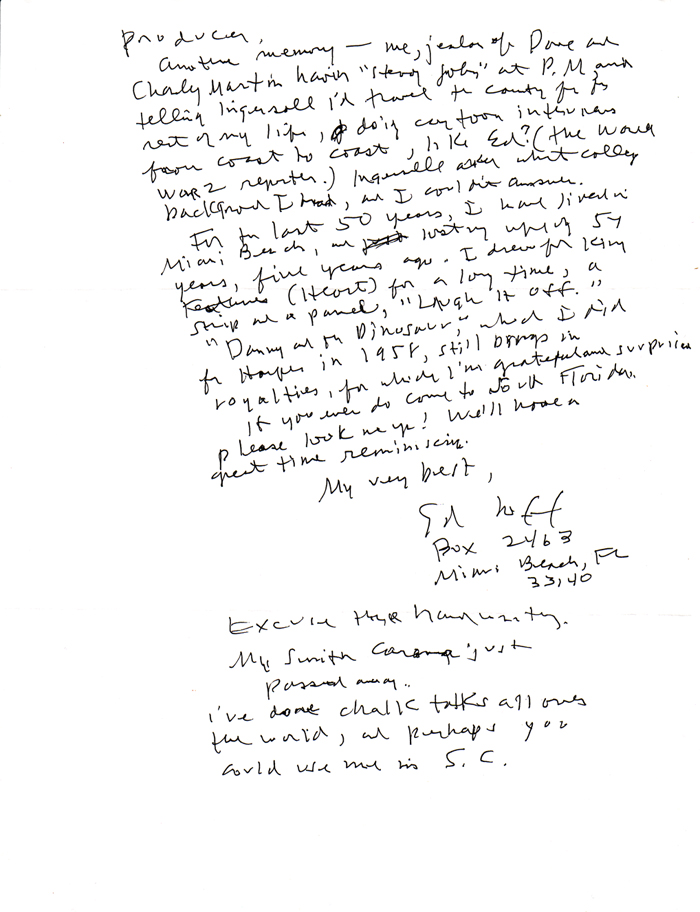 Producer,
Another memory — me, jealous of Dave and
Charly Martin havin "steady jobs" at P.M, and
telling Ingersoll I'd travel the county for the
rest of my life, doig cartoon interviews
from coast to coast, like Ed? (the World
War 2 reporter.) Ingersolle asked what colleg
background I had, and I couldn't answer.
For the last 50 years, I have lived in
Miami Beach, and lost my wife of 54
years, five years ago. I drew for King
Features (Heart) for a long time, a
strip and a panel, "Laugh it Off."
"Danny and the Dinosaur," which I did
for Harper in 1958, still brings in
royalties, for which I'm grateful and surprised
If you ever do come to South Florida,
please look me up! We'll have a
great time reminiscing.
My very best,
Syd Hoff
Box 2463
Miami Beach, FL
33140
Excuse the handwriting.
My Smith Corona just
passed away..
i've done chalk talks all over
the world, and perhaps you
could use me in S.C.